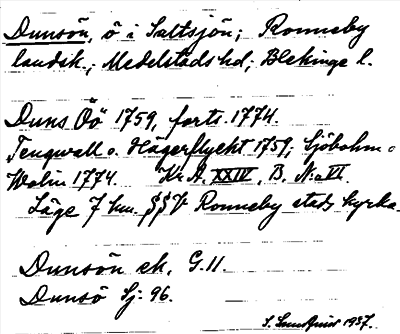 Dunsön, ö i Saltsjön; Ronneby
landsk.; Medelstads hd; Blekinge l.
Duns Öö 1759, forts. 1774.
Tengwall o. Hägerflycht 1759; Sjöbohm o
Wolin 1774. Kr. A. XXIV, B. N:o VI.
Läge 7 km. §§V Ronneby stads kyrka.
Dunsön ek. G. 11.
Dunsö Sj. 96.
1937.